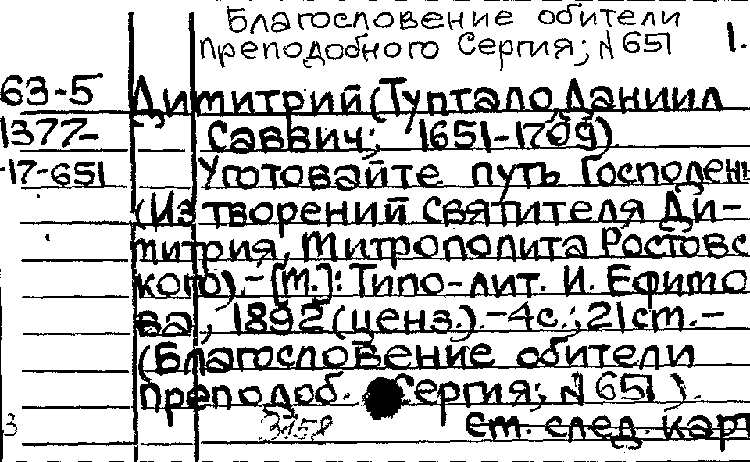 Благословение обители
преподобного Сергия; №651 1.
63-5 Димитрий (Туптало, Даниил
1377- Саввич; 1651-1709)
-17-651 Уготовайте путь Господень
(Из творений святителя Ди-
митрия, митрополита Ростовс
кого).-[М.]: Типо-лит. И. Ефимо
ва, 1892 (ценз.).-4с.; 21см.-
(Благословение обители
преподоб. Сергия; №651).
3 3158 см. след. карт